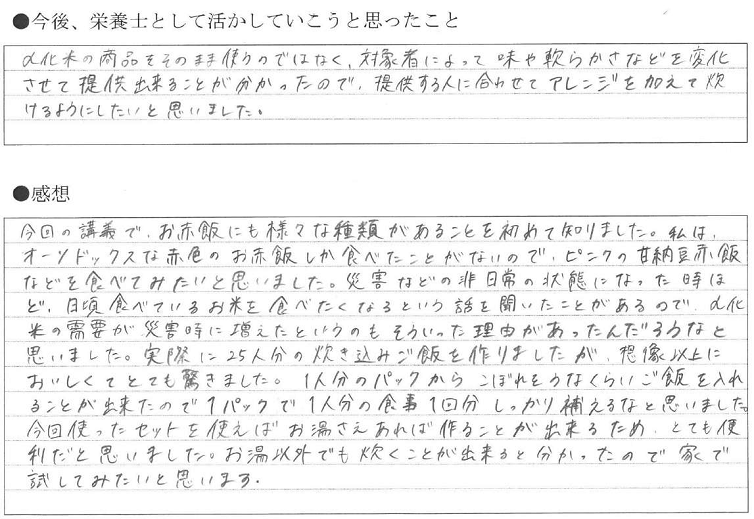 ●今後、栄養士として活かしていこうと思ったこと
α化米の商品をそのまま使うのではなく、対象者によって味や軟らかさなどを変化
させて提供出来ることが分かったので、提供する人に合わせてアレンジを加えて炊
けるようにしたいと思いました。
●感想
今回の講義で、お赤飯にも様々な種類があることを初めて知りました。私は、
オーソドックスな赤色のお赤飯しか食べたことがないので、ピンクの甘納豆赤飯
などを食べてみたいと思いました。災害などの非日常の状態になった時ほ
ど、日頃食べているお米を食べたくなるという話を聞いたことがあるので、α化
米の需要が災害時に増えたというのもそういった理由があったんだろうなと
思いました。実際に25人分の炊き込みご飯を作りましたが、想像以上に
おいしくてとても驚きました。1人分のパックからこぼれそうなくらいご飯を入れ
ることが出来たので1パックで1人分の食事1回分しっかり補えるなと思いました。
今回使ったセットを使えばお湯さえあれば作ることが出来るため、とても便
利だと思いました。お湯以外でも炊くことが出来ると分かったので家で
試してみたいと思います。